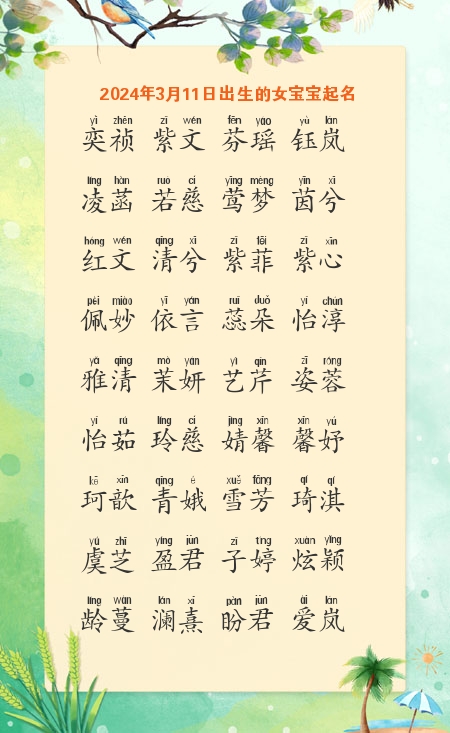 2024年3月11日出生的女宝宝起名
yì zhēn zǐ wén fēn yáo yù lán
奕祯 紫文 芬瑶 钰岚
líng hàn ruò cí yīng mèng yīn xī
凌菡 若慈 莺梦 茵兮
hóng wén qīng xī zǐ fēi zǐ xīn
红文 清兮 紫菲 紫心
pèi miào yī yán ruǐ duǒ yí chún
佩妙 依言 蕊朵 怡淳
yǎ qīng mò yán yì qín zī róng
雅清 茉妍 艺芹 姿蓉
yí rú líng cí jìng xīn xīn yú
怡茹 玲慈 婧馨 馨妤
kē xīn qīng é xuě fāng qí qí
珂歆 青娥 雪芳 琦淇
yú zhī yíng jūn zǐ tíng xuàn yǐng
虞芝 盈君 子婷 炫颖
líng wàn lán xī pàn jūn ài lán
龄蔓 澜熹 盼君 爱岚